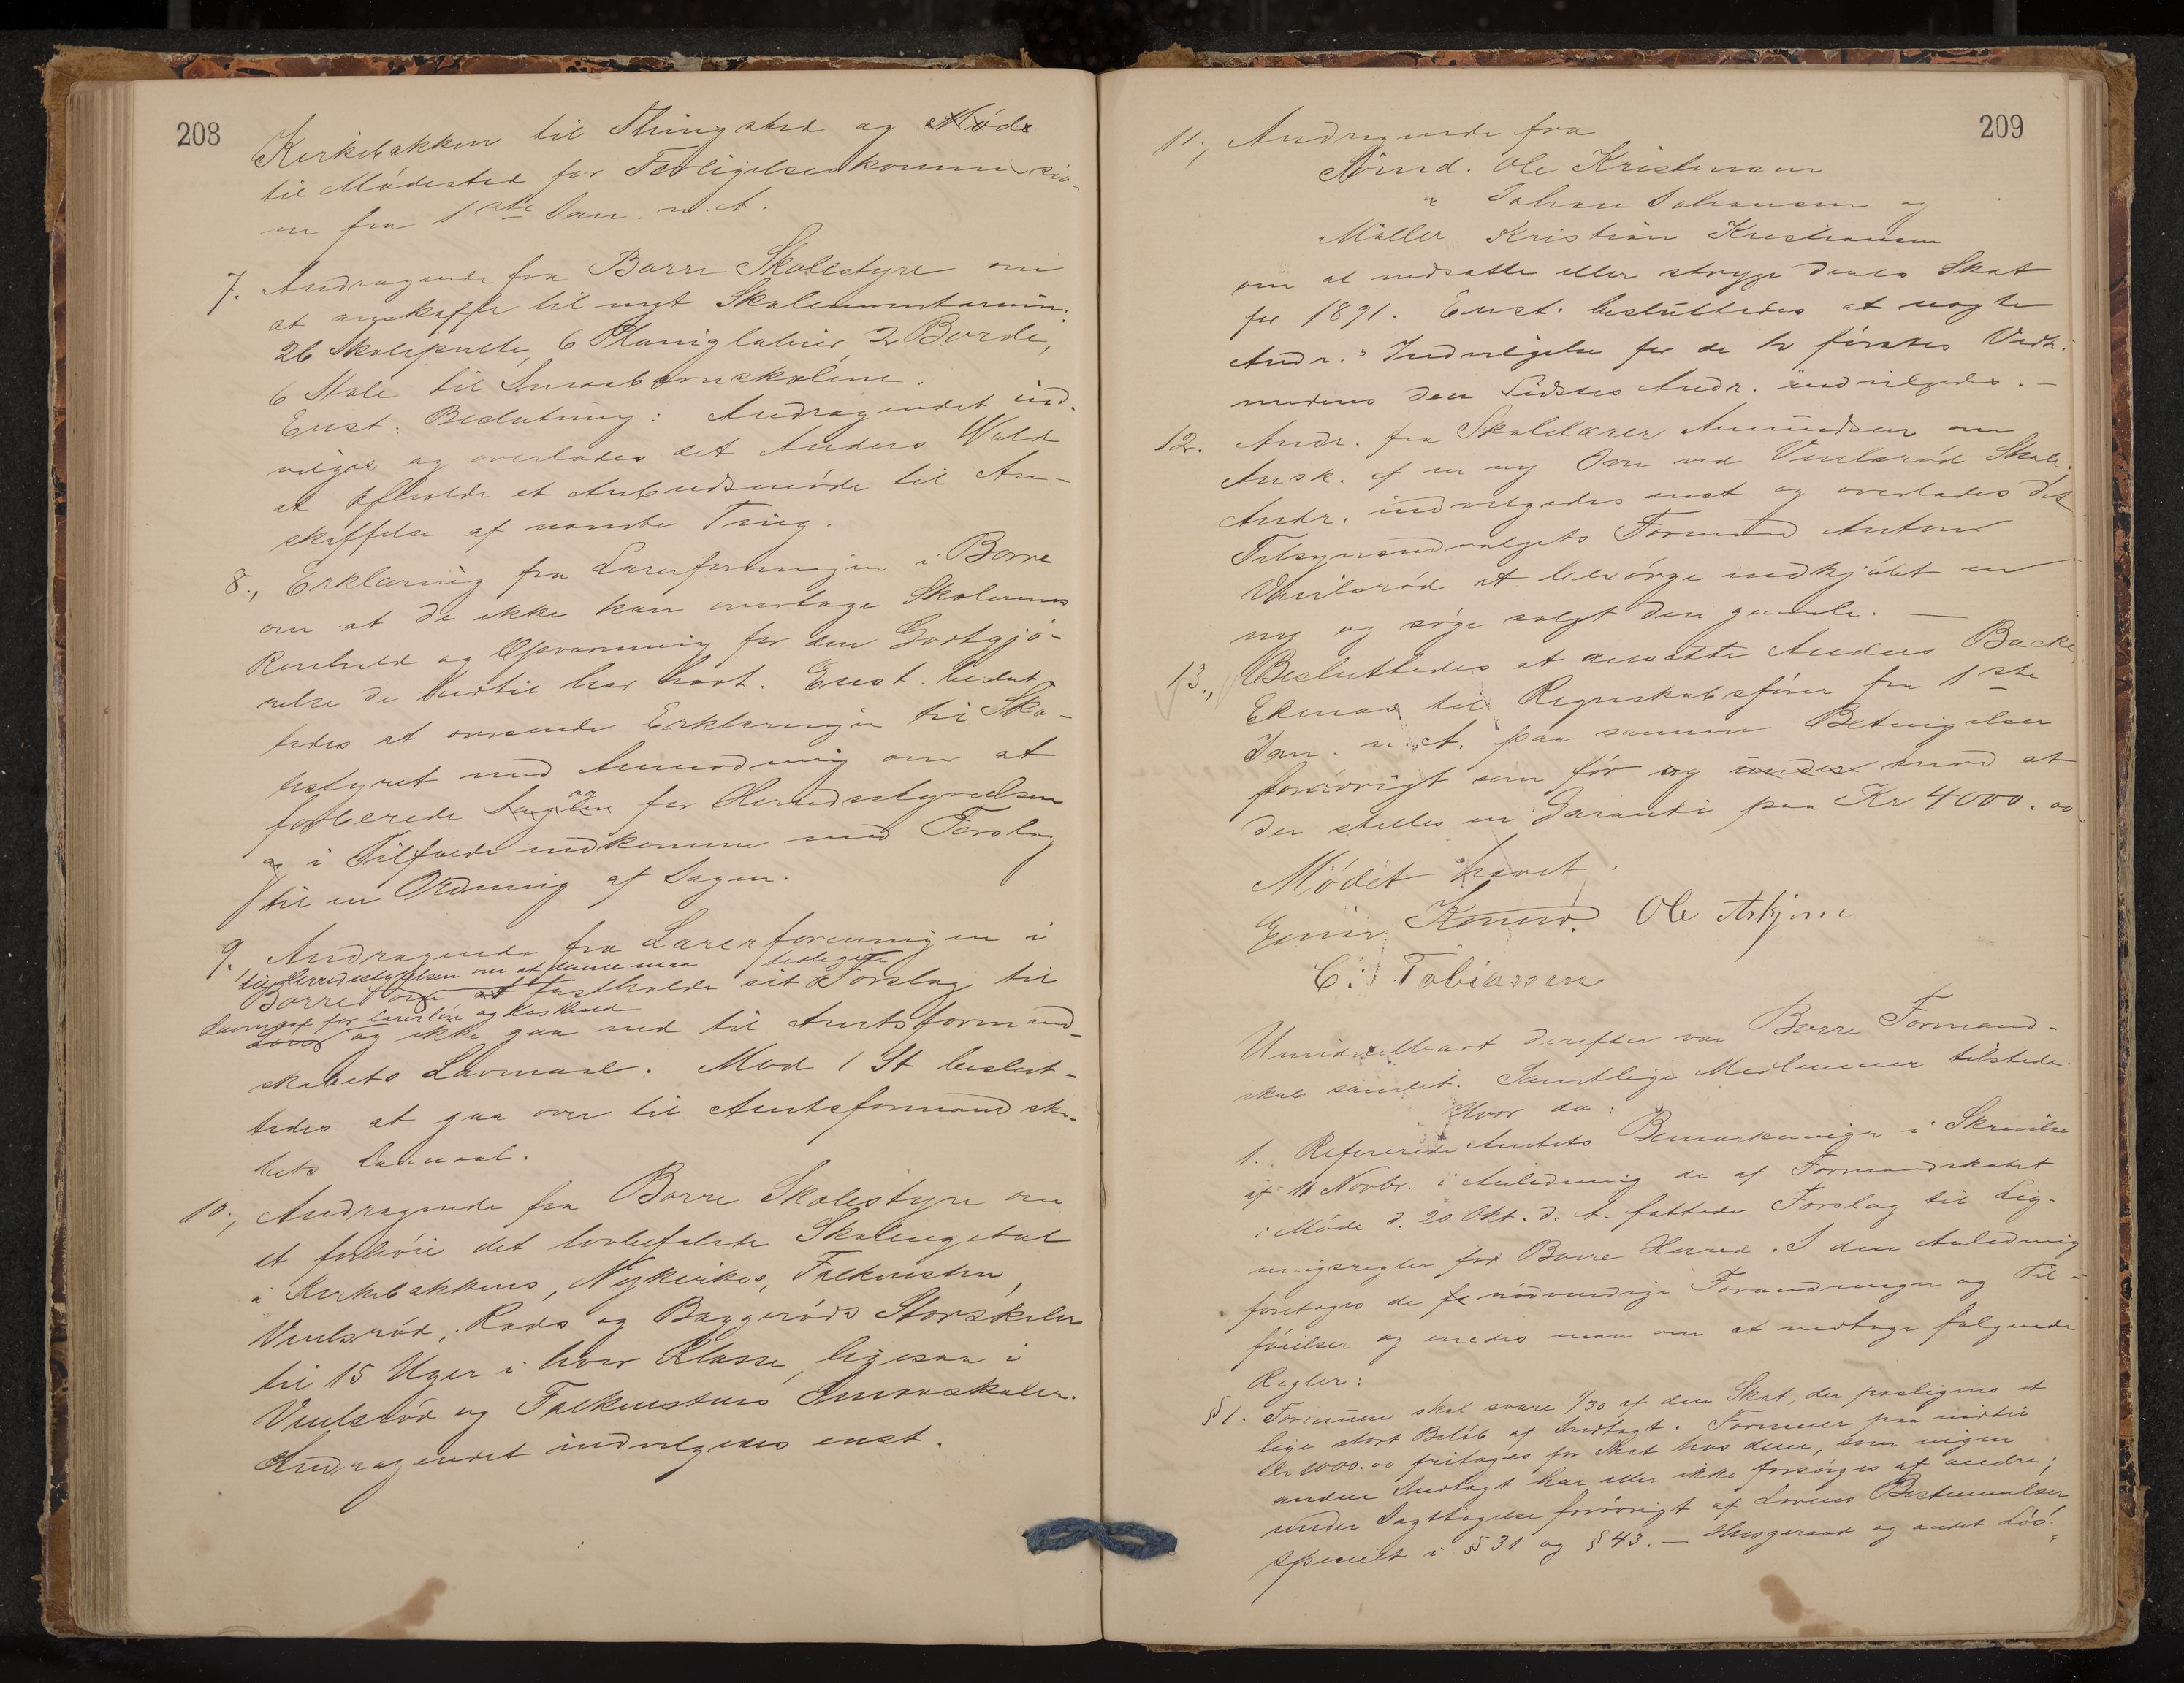 208
Kirkebakken til Thingsted og Møde
til Mødested for Forligelseskommissio-
en fra 1ste Jan. n. A.
7. Andragende fra Borre Skolestyre om
at anskaffe til nyt Skoleinventarium:
26 Skolepulte, 6 Planiglober, 2 Borde,
6 Stole til Smaabarnskolene.
Enst. Beslutning: Andragendet ind-
vilges og overlades det Anders Wold
at afholde et Anbudsmøde til An-
skaffelse af nævnte Ting.
8., Erklæring fra Lærerforeningen i Borre
om at de ikke kan overtage Skolernes
Renhold og Opvarmning for den Godtgjø-
relse de hidtil har havt. Enst. beslut-
tedes at oversende Erklæringen til Sko-
lestyret med Anmodning om at
forberede Sagen for Herredsstyrelsen
og i Tilfælde indkomme med Forslag
til en Ordning af Sagen.
9. Andragende fra Lærerforeningen i
til Herredsstyrelsen om at denne maa tidligere
Borre om at fastholde sit Forslag til
Lavmaal for Lærerløn og Kosthold
Løns og ikke gaa ned til Amtsformand-
skabets Lavmaal. Mod 1 St. beslut-
tedes at gaa over til Amtsformandska-
bets Lavmaal.
10., Andragende fra Borre Skolestyre om
at forhøie det lovbefalede Skolegetal
i Kirkebakkens, Nykirkes, Falkensten,
Viulsrød, Rads og Baggerøds Storskoler
til 15 Uger i hver Klasse, ligesaa i
Viulsrød og Falkenstens Smaaskoler.
Andragendet indvilgedes enst.
209
11., Andragende fra
Sømd. Ole Kristensen
" Johan Johansen og
Møller Kristian Kristiansen
om at nedsætte eller stryge deres Skat
for 1891. Enst. besluttedes at nægte
Andr.s Indvilgelse for de to førstes Vedk.
medens den Sidstes Andr. indvilgedes. —
12. Andr. fra Skolelærer Amundsen om
Ansk. af en ny Ovn ved Viulsrød Skole.
Andr. indvilgedes enst og overlades det
Tilsynsudvalgets Formand Anton
Viulsrød at besørge indkjøbt en
ny og søge solgt den gamle. —
13., Besluttedes at ansætte Anders Backe
til Regnskabsfører fra 1ste
Jan. n. A. paa samme Betingelser
forøvrigt som før og under mod at
der stilles en Garanti paa Kr 4000.00
Mødet hævet.
Ole Askjem
C. Tobiassen
Umiddelbart derefter var Borre Formand-
skab samlet. Samtlige Medlemmer tilstede.
Hvor da:
1. Refereredes Amtets Bemærkninger i Skrivelse
af 11 Novbr. i Anledning de af Formandskabet
i Møde d. 20 Okt. d. A. fattede Forslag til Lig-
ningsregler for Borre Herred. I den Anledning
foretoges de fo nødvendige Forandringer og Til-
føielser og enedes man om at vedtage følgende
Regler:
§ 1. Formuen skal svare 1/30 af den Skat, der paalignes et
lige stort Beløb af Indtægt. Formuer paa indtil
Kr 1000.00 fritages for Skat hos dem, som ingen
anden Indtægt har eller ikke forsørges af andre;
under Iagttagelse forøvrigt af Lovens Bestemmelser
specielt i § 31 og § 43. — Husgeraad og andet Løs-